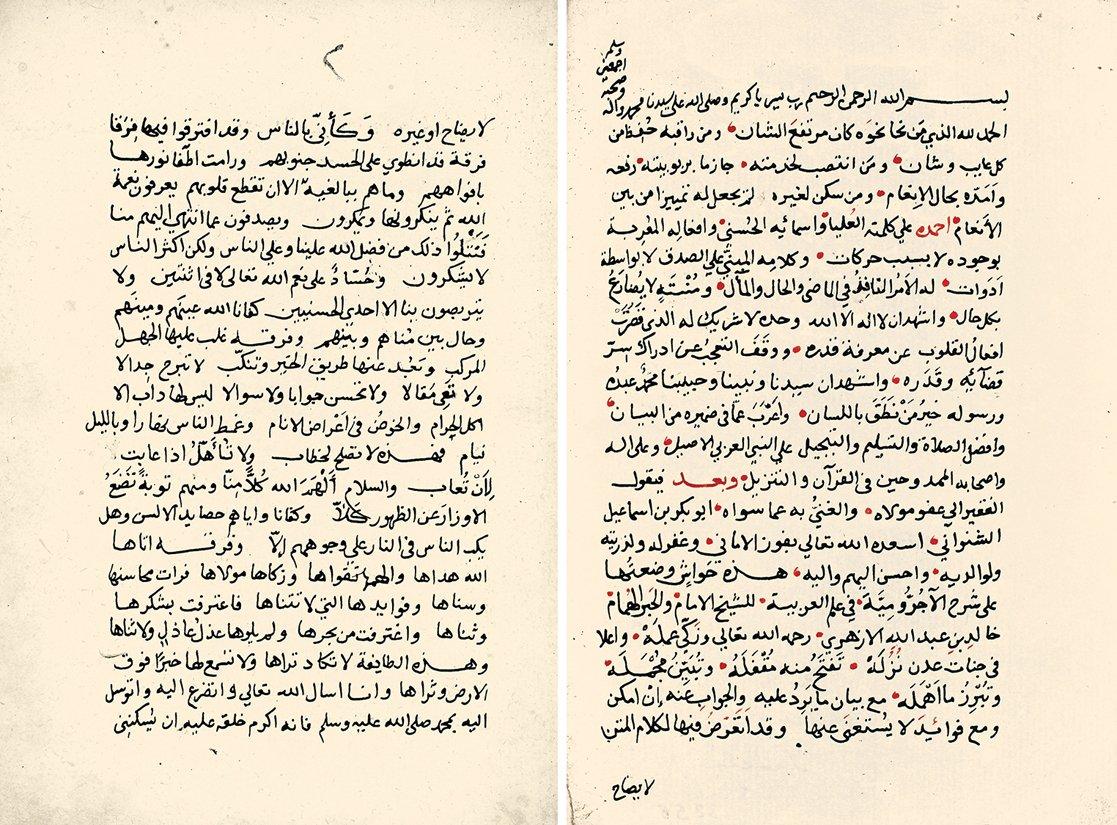 بسم الله الرحمن الرحيم رب يسر ياكريم وصلى الله على سيدنا محمد وآله
وصحبه
اجمعين
وسلم
الحمد لله الذي من نحا نحوه كان مرتفع الشان ومن راقبه حفظ من
كل عايب وشان ومن انتصب لخدمته جازما بربوبيته رفعه
وامده بحال الإنعام ومن سكن لغيره لم يجعل له تمييزا من بين
الأنعام احمده على كلمته العليا واسمائه الحسنى وافعاله المعربة
بوجوده لا بسبب حركات وكلامه المبني على الصدق لا بواسطة
ادوات له الأمر النافذ في الماضي والحال والمآل ومنته لا يضارع
بكل حال واشهد ان لا اله الا الله وحده لا شريك له الذي قصرت
افعال القلوب عن معرفة قدره ووقف التعجب عن ادراك سر
قضآئه وقدره واشهد ان سيدنا ونبينا وحبيبنا محمد عبده
ورسوله خير من نطق باللسان واعرب عما في ضميره من البيان
وافضل الصلاة والتسليم والتبجيل على النبي العربي الاصيل وعلى اله
واصحابه في القرآن والتنزيل وبعد فيقول
الفقير الى عفو مولاه والغني به عما سواه ابو بكر بن اسماعيل
الشنواني اسعده الله تعالى بفوز الاماني وغفر له ولذريته
ولوالديه واحسن اليهم واليه هذه حواش وضعتها
على شرح الآجرومية في علم العربية للشيخ الامام والحبر الهمام
خالد بن عبد الله الازهري رحمه الله تعالى وزكى عمله واعلا
في جنات عدن نزله تفتح منه مقفله وتبين مجمله
وتبرز ما اهمله مع بيان ما يرد عليه والجواب عنه ان امكن
ومع فوائيد لا يستغنى عنها وقد اتعرض فيها لكلام المتن
لايضاح
لايضاح اوغيره وكأني بالناس وقد افترقوا فيها فرقا
فرقة قد انطوى على الحسد جنوبهم ورامت اطفا نورها
بافواههم وماهم ببالغيه الا ان تقطع قلوبهم يعرفون نعمة
الله ثم ينكرونها ويمكرون ويصدفون عما انتهى اليهم منا
ذلك من فضل الله علينا وعلى الناس ولكن اكثر الناس
لا يشكرون وحسادا على نعم الله تعالى لا في اثنتين ولا
يتربصون بنا الا احدى الحسنيين كفانا الله عينهم ومينهم
وحال بين مناهم وبينهم وفرقة غلب عليها الجهل
المركب وتبعد عنها طريق الخير وتنكب لا تبرح جدالا
ولا تعي مقالا ولا تحسن جوابا ولا سوالا ليس لها داب الا
اكل الحرام والخوض في اعراض الانام وغمط الناس نهارا وبالليل
نيام فهذه لا تصلح لخطاب ولا تتأهل اذا عابت
لأن تعاب والسلام ألهم الله كلا منا ومنهم توبة تضع
الاوزار عن الظهور كلا وكفانا واياهم حصايد الالسن وهل
يكب الناس في النار على وجوههم الا وفرقة اتاها
الله هداها والهمها تقواها وزكاها مولاها فرات محاسنها
وسناها وفوايدها التي لا تتناها فاعترفت بشكرها
وثناها واغترفت من بحرها ولم يلوها عذل عاذل ولا ثناها
وهذه الطايفة لا تكاد تراها ولا تسمع لها خبرا فوق
الارض وثراها وانا اسال الله تعالى واتضرع اليه واتوسل
اليه بمحمد صلى الله عليه وسلم فانه اكرم خلقه عليه ان يسكنني